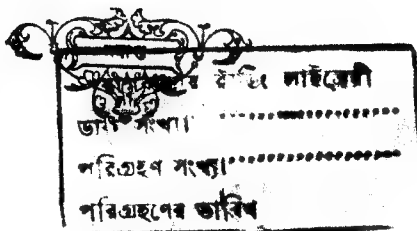 র রীডিং লাইব্রেরী
ডাক সংখ্যা
পরিগ্রহণ সংখ্যা
পরিগ্রহণের তারিখ